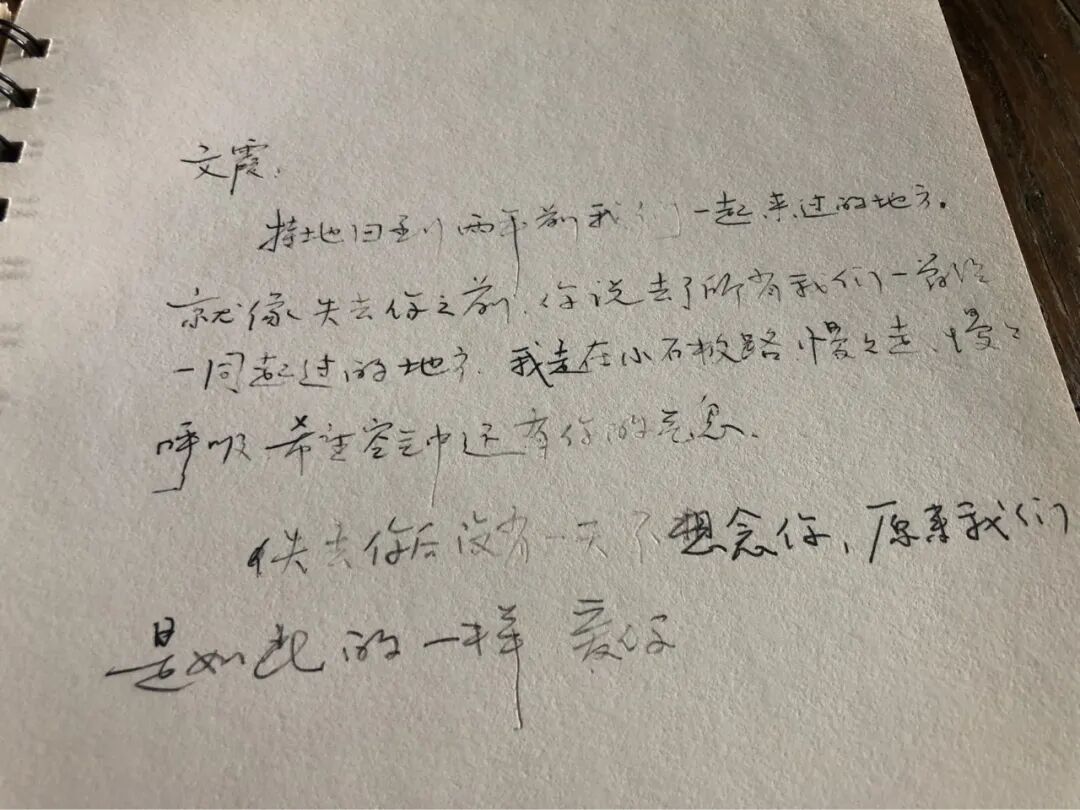 文霞,
特地回到两年前我们一起来过的地方。
就像失去你之前,你说去了所有我们一前
一同起过的地方.我走在小石板路慢々走、慢々
呼吸 希望空气中还有你的气息.
失去你后没有一天不想念你,原来我们
是如此的一样 爱你